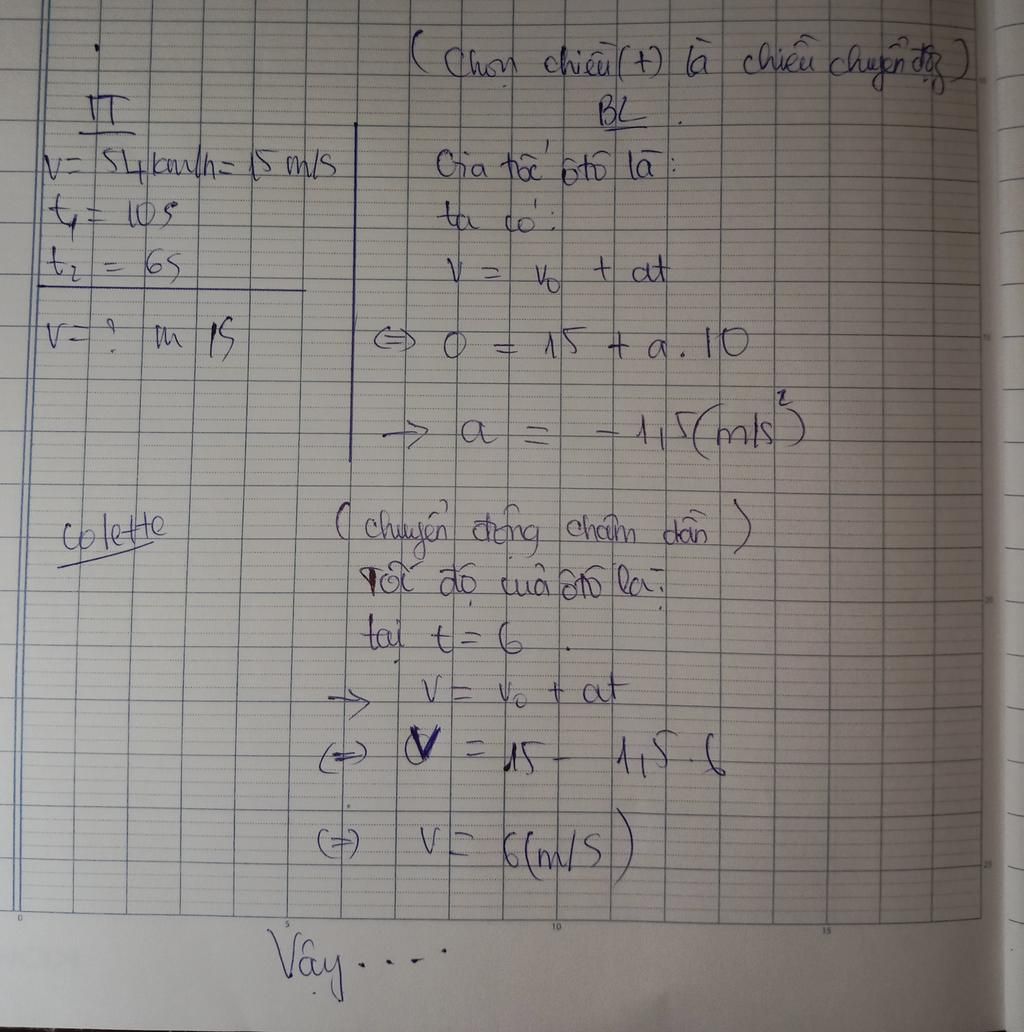 (Chọn chiều (+) là chiều chuyển độg)
TT
v = 54 km/h = 15 m/s
t₁ = 10s
t₂ = 6s
v = ? m/s
BL.
Gia tốc ôtô là:
ta có:
v = v₀ + at
⇔ 0 = 15 + a.10
→ a = -1,5(m/s²)
colette
(chuyển động chậm dần)
Tốc độ của ôtô là:
tại t = 6.
→ v = v₀ + at
⇔ V = 15 - 1,5.6
⇔ v = 6(m/s)
0 5 10 15
Vậy.....